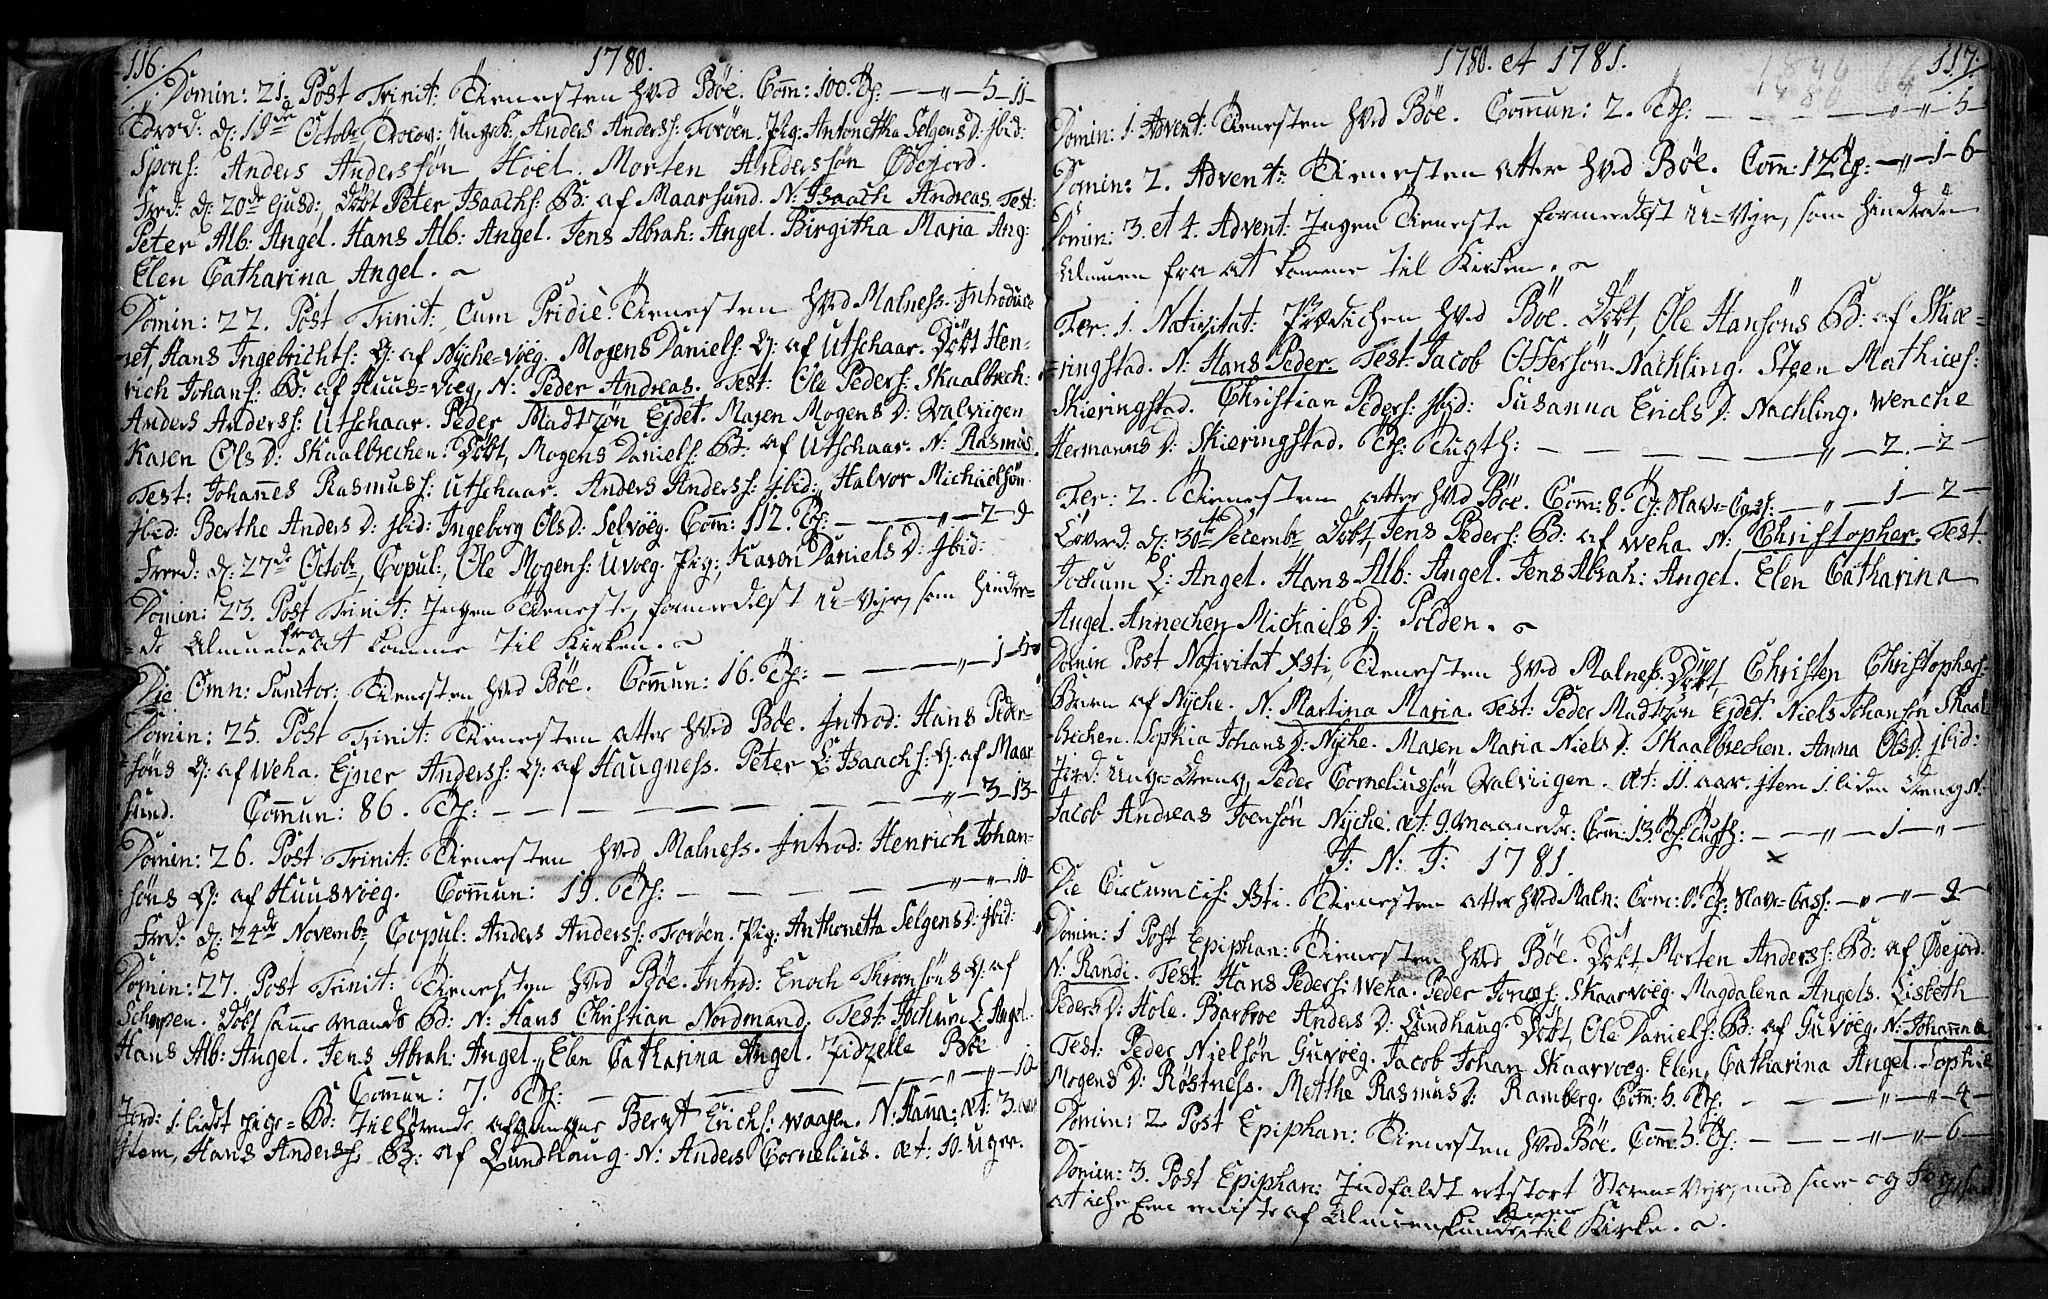 116.
1780.
Domin: 21. Post Trinit: Tienesten hved Böe. Com̄: 100. Tf: — „ — 5 — 11 —
d: 19de Octobr, Trolov: Ungk: Anders Anderss: Foröen. Pig: Antonetha Selgens D: jbid:
Spons: Anders Anderssøn Hoel. Morten Anderssøn Ødejord.
Fred: d: 20de Ejusd: Döbt Peter Isaachs: B: af Maarsund. N: Isaach Andreas. Test:
Peter Alb: Angel. Hans Alb: Angel. Jens Abrah: Angel. Birgitha Maria Ang:
Elen Catharina Angel.
Domin: 22. Post Trinit: Cum Pridie Tienesten hved Malness. Introduce-
ret, Hans Ingebrichts: Q: af Nyche-Vög. Mogens Daniels: Q: af Utschaar. Döbt Hen-
rich Johans: B: af Huus-Vög, N: Peder Andreas. Test: Ole Peders: Skaalbrech:
Anders Anderss: Utschaar. Peder Madtzøn Ejdet. Maren Mogens D: Valviigen
Karen Ols D: Skaalbrechen. Döbt, Mogens Daniels: B: af Utschaar. N: Rasmus.
Test: Johan̄es Rasmuss: Utschaar. Anders Anderss: jbid: Halvor Michaelsøn
jbid: Berthe Anders D: jbid: Ingeborg Ols D: Selvöeg. Com̄: 112. Tf: — — „ — 2 — 9
Fred: d: 27de Octobr, Copul: Ole Mogens: Uvoeg. Pig: Karen Daniels D: jbid:
Domin: 23. Post Trinit: Ingen Tieneste, formedelst U-Vejr, som hinder-
de Almuen fra at komme til Kirken.
Die Omn: Sanctor: Tienesten hved Böe. Com̄un: 16. Tf: — — — „ — 1 — 5
Domin: 25. Post Trinit: Tienesten atter hved Böe. Introd: Hans Peder-
söns Q: af Weha. Ejner Anderss: Q: af Haugness. Peter L: Isaachs: Q: af Maar
sund. Com̄un: 86. Tf: — — — — — „ — 3 — 13 —
Domin: 26. Post Trinit: Tienesten hved Malness. Introd: Henrich Johan-
söns Q: af Huusvöeg. Com̄un: 19. Tf: — — — — „ — „ — 10 —
Fred: d: 24de Novembr, Copul: Anders Anderss: Foröen. Pig: Anthonetta Selgens D: jbid:
Domin: 27. Post Trinit: Tienesten hved Böe. Introd: Enoch Thronsöns Q: af
Schogen. Döbt sam̄e Mands B: N: Hans Christian Nordmand. Test: Jochum L: Angel.
Hans Alb: Angel. Jens Abrah: Angel. Elen Catharina Angel. Zidzelle Böe
Com̄un: 7. Tf: — — — — „ — „ — 10
Jord: 1. lidet Pige-B: tilhørende afgangne Bernt Erichs: Waagen. N: Han̄a: æt: 3. aar
item, Hans Anderss: B: af Lundhaug. N: Anders Cornelius. æt: 10. Uger.
1780. et 1781.
117.
Domin: 1. Advent: Tienesten hved Böe. Com̄un: 2. Tf: — — — — „ — „ — 5 —
Domin: 2. Advent: Tienesten atter hved Böe. Com̄: 12. Tf: — „ — 1 — 6 —
Domin: 3. et 4. Advent: Ingen Tieneste formedelst U-Vejr, som hindrede
Almuen fra at komme til Kirken.
Fer: 1. Nativitat: Prædichen hved Böe. Döbt, Ole Hansöns B: af Skie-
-ringstad. N: Hans Peder. Test: Jacob Offersøn Nachling. Steen Mathies:
Skieringstad. Christian Peders: jbid: Susanna Erichs D: Nachling. Wenche
Hermanns D: Skieringstad. Tf: Tugth: — — — — „ — 2. — 2 —
Fer: 2. Tienesten atter hved Böe. Com̄: 8. Tf: Slave-Cass: — „ — 1 — 2 —
Löverd: d: 30te Decembr Döbt, Jens Peders: B: af Weha. N: Christopher. Test:
Jochum L: Angel. Hans Alb: Angel. Jens Abrah: Angel. Elen Catharina
Angel. Annechen Michaels D: Polden.
Domin Post Nativitat Xsti, Tienesten hved Malness. Döbt, Christen Christophers:
Barn af Nyche. N: Martina Maria. Test: Peder Madtzøn Ejdet. Niels Johansøn Skaal-
brechen. Sophia Johans D: Nyche. Maren Maria Niels D: Skaalbrechen. Anna Ols D: jbid:
Jord: Unge-Dreng, Peder Corneliussøn Valviigen. æt: 11. aar. jtem 1. liden Dreng N:
Jacob Andreas Joensön Nyche. æt: 9. Maaneder. Com̄: 13. Tf: Tugth: — — „ — 1 — „ —
I: N: J: 1781.
Die Circumcis: Xsti. Tienesten atter hved Maln: Com: 8. Tf: Slave-Cass: — „ — „ — 2 —
Domin: 1 Post Epiphan: Tienesten hved Böe. Döbt Morten Anderss: B: af Ødejord.
N: Randi. Test: Hans Peders: Weha. Peder Joncs: Skaarvöeg. Magdalena Angels. Lisbeth
Peders D: Hole. Barbroe Anders D: Lundhaug. Döbt, Ole Daniels: B: af Guvöeg. N: Johan̄na.
Test: Peder Nielsön Guvöeg. Jacob Johan Skaarvoeg. Elen Catharina Angel. Sophie
Mogens D: Röstness. Methe Rasmus D: Ramberg. Com̄: 5. Tf: — — — „ — „ — 4 —
Domin: 2 Post Epiphan: Tienesten hved Böe. Com̄: 5. Tf: — — — „ — „ — 6 —
Domin: 3. Post Epiphan: Indfaldt et stort Storm-Vejr, med snee og
at iche Een eniste af Almuen kunde komme til Kirke.